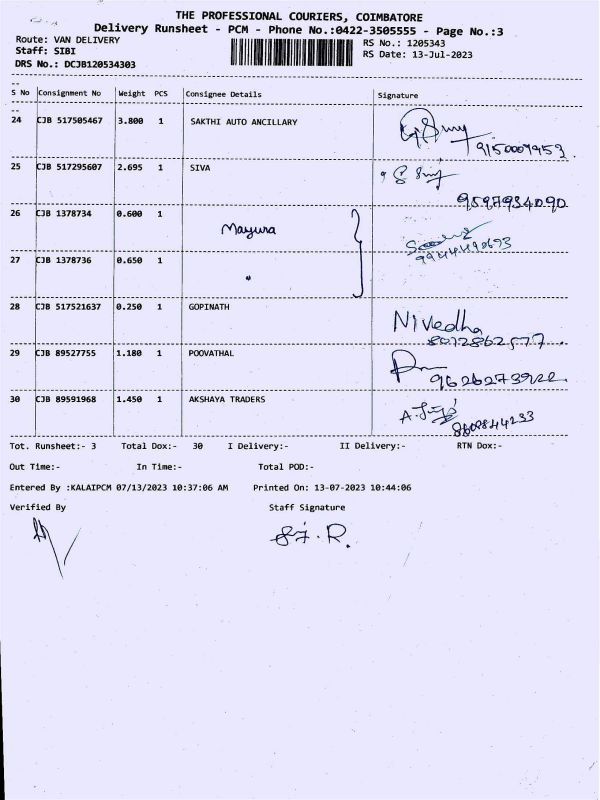 THE PROFESSIONAL COURIERS, COIMBATORE
Delivery Runsheet - PCM - Phone No.:0422-3505555 - Page No.:3
Route: VAN DELIVERY
Staff: SIBI
DRS No.: DCJB120534303
RS No.: 1205343
RS Date: 13-Jul-2023
S No Consignment No Weight PCS Consignee Details Signature
24 CJB 517505467 3.800 1 SAKTHI AUTO ANCILLARY
25 CJB 517295607 2.695 1 SIVA
26 CJB 1378734 0.600 1 Mayura
27 CJB 1378736 0.650 1 "
28 CJB 517521637 0.250 1 GOPINATH Nivedha
8072862577
29 CJB 89527755 1.180 1 POOVATHAL
9626273922
30 CJB 89591968 1.450 1 AKSHAYA TRADERS
Tot. Runsheet:- 3 Total Dox:- 30 I Delivery:- II Delivery:- RTN Dox:-
Out Time:- In Time:- Total POD:-
Entered By :KALAIPCM 07/13/2023 10:37:06 AM Printed On: 13-07-2023 10:44:06
Verified By Staff Signature